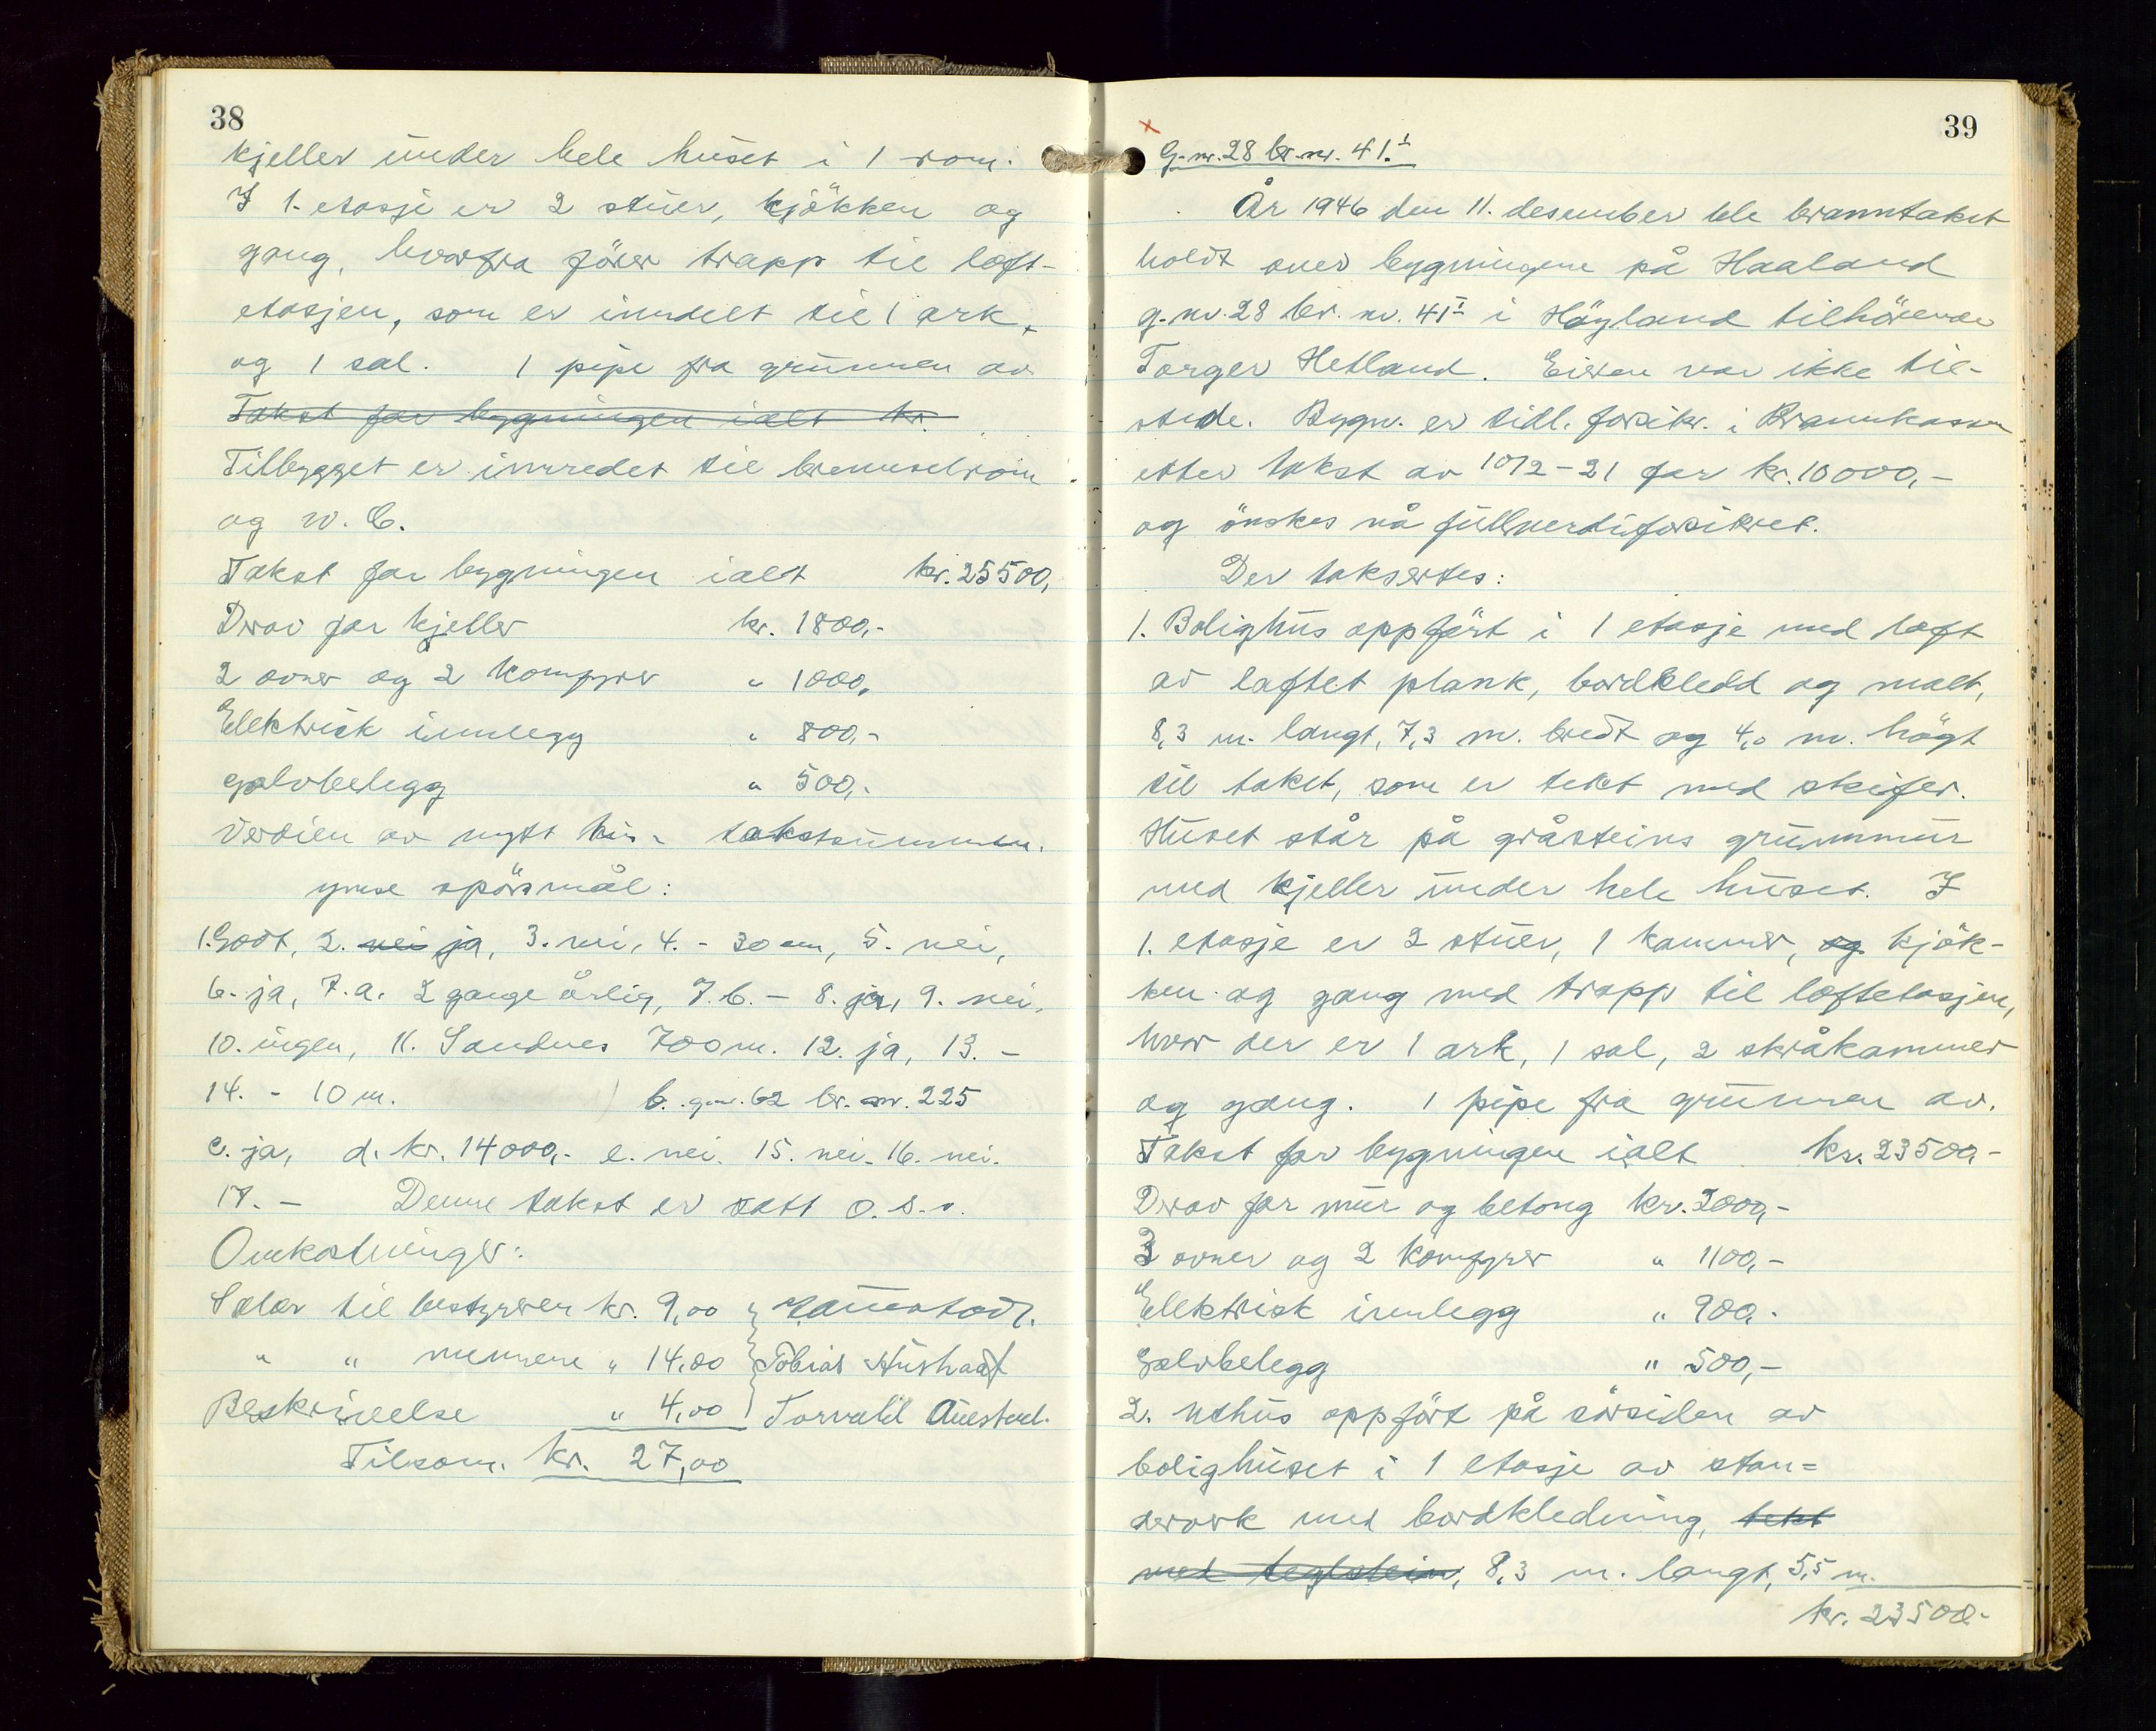 38
kjeller under hele huset i 1 rom.
I 1. etasje er 2 stuer, kjökken og
gang, hvorfra förer trapp til loft-
etasjen, som er inndelt til 1 ark,
og 1 sal. 1 pipe fra grunnen av
Takst for bygningen ialt kr.
Tilbygget er innredet til brenselrom
og w. C.
Takst for bygningen ialt kr. 25500,
Derav for kjeller kr. 1800,-
2 ovner og 2 komfyrer " 1000,
Elektrisk innlegg " 800,-
golvbelegg " 500,-
Verdien av nytt hus = takstsummen.
ymse spörsmål:
1. Godt, 2. nei ja, 3. nei, 4. - 30 cm, 5. nei,
6. ja, 7. a. 2 gange årlig, 7. b. - 8. ja, 9. nei,
10. ingen, 11. Sandnes 700 m. 12. ja, 13. -
14. - 10 m. b. g.nr. 62 br. nr. 225
c. ja, d. kr. 14000,- e. nei. 15. nei. 16. nei.
17. - Denne takst er satt o.s.v.
Omkostninger:
Salær til bestyreren kr. 9,00
" " mennene " 14,00 Tobias Hushaat
Beskrivelse " 4,00 Torvald Auestad.
Tilsam. kr. 27,00
39
G.nr. 28 br. nr. 41.I
År 1946 den 11. desember ble branntakst
holdt over bygningene på Haaland
g.nr. 28 br. nr. 41I i Höyland tilhörende
Torger Hetland. Eieren var ikke til-
stede. Bygn. er tidl. forsikr. i Brannkassen
etter takst av 10/2-21 for kr. 10000,-
og önskes nå fullverdiforsikret.
Der taksertes:
1. Bolighus oppfört i 1 etasje med loft
av laftet plank, bordkledd og malt,
8,3 m. langt, 7,3 m. bredt og 4,0 m. högt
til taket, som er tekt med skifer.
Huset står på gråsteins grunnmur
med kjeller under hele huset. I
1. etasje er 2 stuer, 1 kammer, og kjök-
ken og gang med trapp til loftetasjen,
hvor der er 1 ark, 1 sal, 2 skråkammer
og gang. 1 pipe fra grunnen av.
Takst for bygningen ialt kr. 23500,-
Derav for mur og betong kr. 2000,-
3 ovner og 2 komfyrer " 1100,-
Elektrisk innlegg " 900,-
Golvbelegg " 500,-
2. Uthus oppfört på sörsiden av
bolighuset i 1 etasje av stan=
derverk med bordkledning, tekt
med teglstein, 8,3 m. langt, 5,5 m.
kr. 23500-